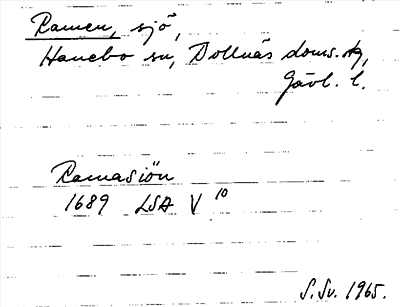 Ramen, sjö,
Hanebo sn, Bollnäs doms.ag,
Gävl. l.
Ramasiön
1689 LSA V 10
S. Sv. 1965.